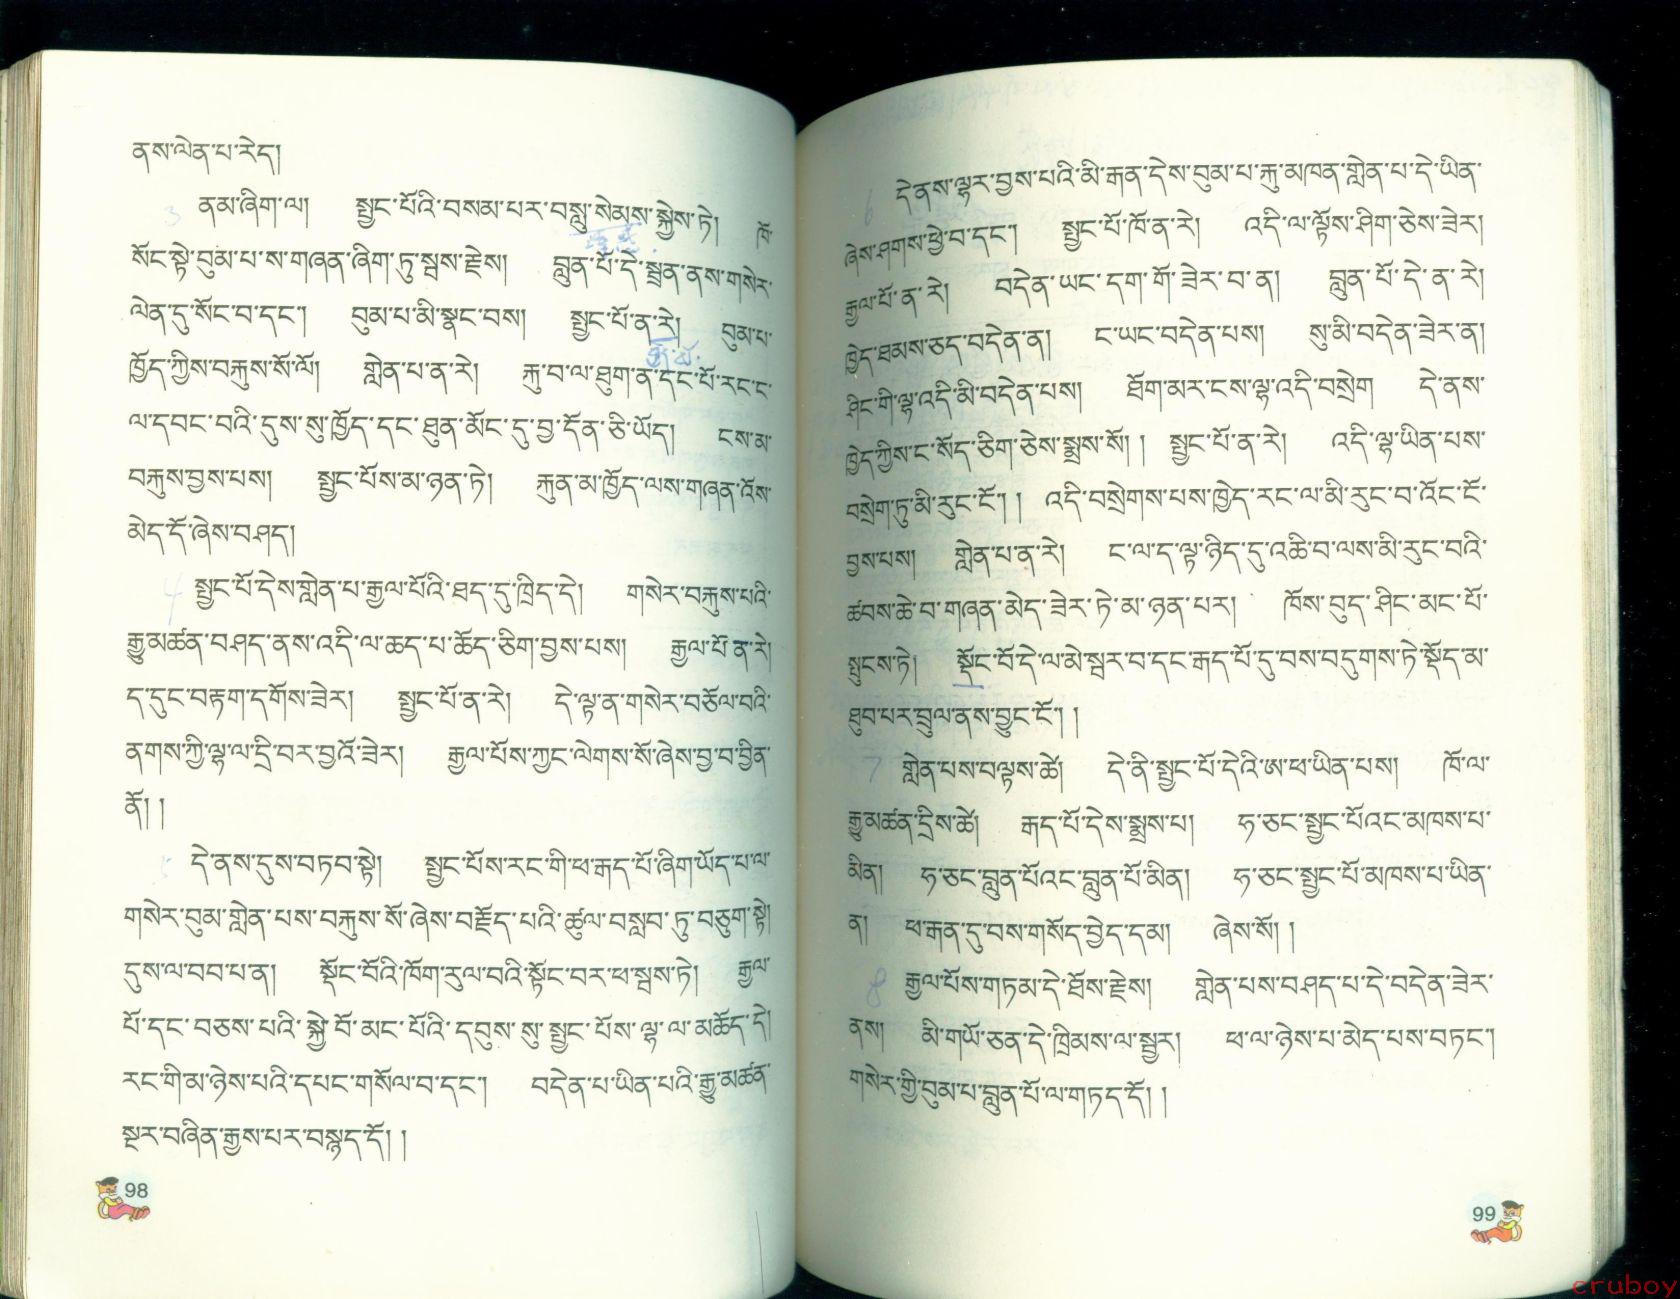 ནས་ལེན་པ་རེད།
ནམ་ཞིག་ལ། སྤྱང་པོའི་བསམ་པར་བསླུ་སེམས་སྐྱེས་ཏེ། ཁོ་
སོང་སྟེ་བུམ་པ་ས་གཞན་ཞིག་ཏུ་སྦས་རྗེས། བླུན་པོ་དེ་སྦྲན་ནས་གསེར་
ལེན་དུ་སོང་བ་དང་། བུམ་པ་མི་སྣང་བས། སྤྱང་པོ་ན་རེ། བུམ་པ་
ཁྱོད་ཀྱིས་བརྐུས་སོ་ལོ། གླེན་པ་ན་རེ། རྐུ་བ་ལ་ཐུག་ན་དང་པོ་རང་ང་
ལ་དབང་བའི་དུས་སུ་ཁྱོད་དང་ཐུན་མོང་དུ་བྱ་དོན་ཅི་ཡོད། ངས་མ་
བརྐུས་བྱས་པས། སྤྱང་པོས་མ་ཉན་ཏེ། རྐུན་མ་ཁྱོད་ལས་གཞན་འོས་
མེད་དོ་ཞེས་བཤད།
སྤྱང་པོ་དེས་གླེན་པ་རྒྱལ་པོའི་ཐད་དུ་ཁྲིད་དེ། གསེར་བརྐུས་པའི་
རྒྱུ་མཚན་བཤད་ནས་འདི་ལ་ཆད་པ་ཆོད་ཅིག་བྱས་པས། རྒྱལ་པོ་ན་རེ།
ད་དུང་བརྟག་དགོས་ཟེར། སྤྱང་པོ་ན་རེ། དེ་ལྟ་ན་གསེར་བཅོལ་བའི་
ནགས་ཀྱི་ལྷ་ལ་དྲི་བར་བྱའོ་ཟེར། རྒྱལ་པོས་ཀྱང་ལེགས་སོ་ཞེས་བྱ་བ་བྱིན་
ནོ། །
དེ་ནས་དུས་བཏབ་སྟེ། སྤྱང་པོས་རང་གི་ཕ་རྒད་པོ་ཞིག་ཡོད་པ་ལ་
གསེར་བུམ་གླེན་པས་བརྐུས་སོ་ཞེས་བརྗོད་པའི་ཚུལ་བསླབ་ཏུ་བཅུག་སྟེ།
དུས་ལ་བབ་པ་ན། སྡོང་བོའི་ཁོག་རུལ་བའི་སྟོང་བར་ཕ་སྦས་ཏེ། རྒྱལ་
པོ་དང་བཅས་པའི་སྐྱེ་བོ་མང་པོའི་དབུས་སུ་སྤྱང་པོས་ལྷ་ལ་མཆོད་དེ།
རང་གི་མ་ཉེས་པའི་དཔང་གསོལ་བ་དང་། བདེན་པ་ཡིན་པའི་རྒྱུ་མཚན་
སྔར་བཞིན་རྒྱས་པར་བསྙད་དོ། །
98
དེ་ནས་ལྷར་བྱས་པའི་མི་རྒན་དེས་བུམ་པ་རྐུ་མཁན་གླེན་པ་དེ་ཡིན་
ཞེས་ཤགས་ཕྱེ་བ་དང་། སྤྱང་པོ་ཁོ་ན་རེ། འདི་ལ་ལྟོས་ཤིག་ཅེས་ཟེར།
རྒྱལ་པོ་ན་རེ། བདེན་ཡང་དག་གོ་ཟེར་བ་ན། བླུན་པོ་དེ་ན་རེ།
ཁྱེད་ཐམས་ཅད་བདེན་ན། ང་ཡང་བདེན་པས། སུ་མི་བདེན་ཟེར་ན།
ཤིང་གི་ལྷ་འདི་མི་བདེན་པས། ཐོག་མར་ངས་ལྷ་འདི་བསྲེག དེ་ནས་
ཁྱེད་ཀྱིས་ང་སོད་ཅིག་ཅེས་སྨྲས་སོ། ། སྤྱང་པོ་ན་རེ། འདི་ལྷ་ཡིན་པས་
བསྲེག་ཏུ་མི་རུང་ངོ་། ། འདི་བསྲེགས་པས་ཁྱེད་རང་ལ་མི་རུང་བ་འོང་ངོ་
བྱས་པས། གླེན་པ་ན་རེ། ང་ལ་ད་ལྟ་ཉིད་དུ་འཆི་བ་ལས་མི་རུང་བའི་
ཚབས་ཆེ་བ་གཞན་མེད་ཟེར་ཏེ་མ་ཉན་པར། ཁོས་བུད་ཤིང་མང་པོ་
སྤུངས་ཏེ། སྡོང་བོ་དེ་ལ་མེ་སྦར་བ་དང་རྒད་པོ་དུ་བས་བདུགས་ཏེ་སྡོད་མ་
ཐུབ་པར་བྲུལ་ནས་བྱུང་ངོ་། །
གླེན་པས་བལྟས་ཚེ། དེ་ནི་སྤྱང་པོ་དེའི་ཨ་ཕ་ཡིན་པས། ཁོ་ལ་
རྒྱུ་མཚན་དྲིས་ཚེ། རྒད་པོ་དེས་སྨྲས་པ། ཧ་ཅང་སྤྱང་པོའང་མཁས་པ་
མིན། ཧ་ཅང་བླུན་པོའང་བླུན་པོ་མིན། ཧ་ཅང་སྤྱང་པོ་མཁས་པ་ཡིན་
ན། ཕ་རྒན་དུ་བས་གསོད་བྱེད་དམ། ཞེས་སོ། །
རྒྱལ་པོས་གཏམ་དེ་ཐོས་རྗེས། གླེན་པས་བཤད་པ་དེ་བདེན་ཟེར་
ནས། མི་གཡོ་ཅན་དེ་ཁྲིམས་ལ་སྦྱར། ཕ་ལ་ཉེས་པ་མེད་པས་བཏང་།
གསེར་གྱི་བུམ་པ་བླུན་པོ་ལ་གཏད་དོ། །
99
cruboy